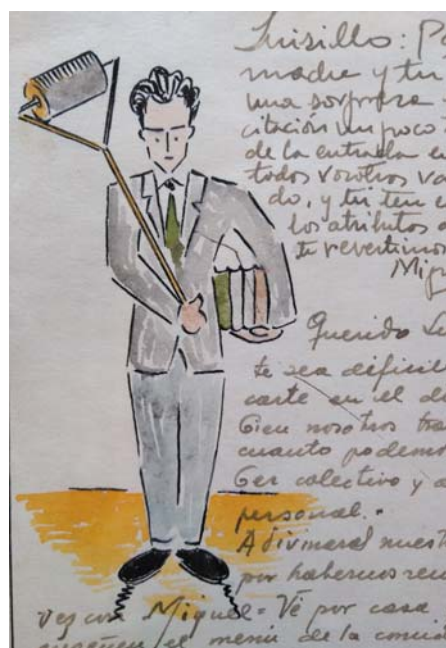 Luisillo: Po
madre y tu
una sorpresa
citación un poco
de la entrada en
todos vosotros va
do, y tú ten c
los atributos d
te revertimos
Migu
Querido Lu
te sea dificil
carte en el de
bien nosotros tra
cuanto podemo
ber colectivo y a
personal.-
Adivinarás nuest
por habernos reu
vez con Miguel= Vé por casa
el menú de la comid